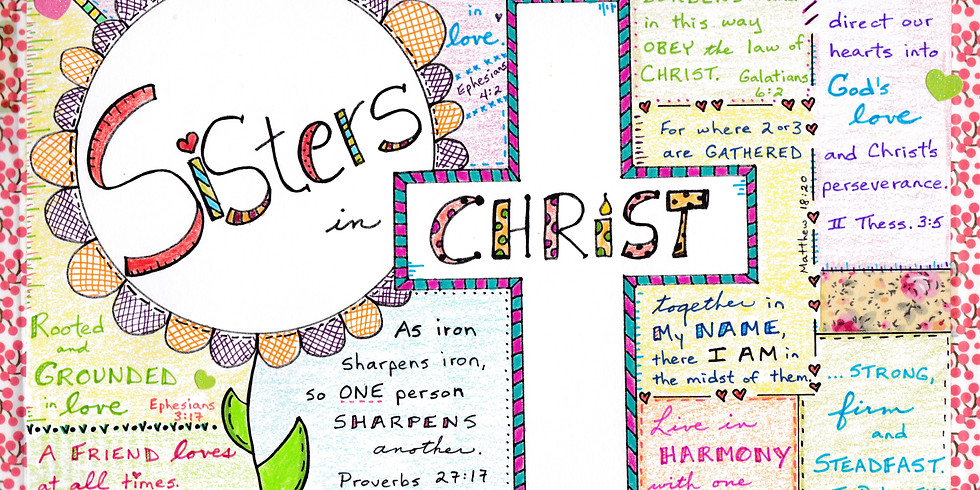 Sisters
in
CHRiST
in
love.
Ephesians
4:2
in this way
OBEY the law of
CHRIST. Galatians
6:2
For where 2 or 3
are GATHERED
together in
My NAME,
there I AM in
the midst of them.
Matthew 18:20
direct our
hearts into
God's
love
and Christ's
perseverance.
II Thess. 3:5
Rooted
and
GROUNDED
in love
Ephesians
3:17
A FRIEND loves
at all times.
As iron
sharpens iron,
so ONE person
SHARPENS
another.
Proverbs 27:17
Live in
HARMONY
with one
...STRONG,
firm
and
STEADFAST.